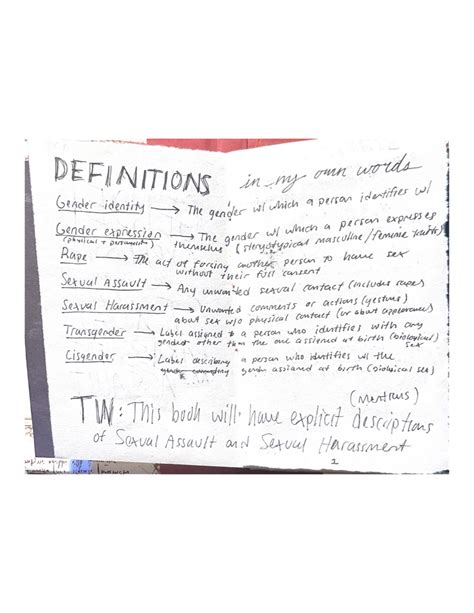 DEFINITIONS in my own words
Gender identity → The gender w/ which a person identifies w/
Gender expression → The gender w/ which a person expresses
(physical + personality) themselves (stereotypical masculine/feminine traits)
Rape → The act of forcing another person to have sex
without their full consent
Sexual Assault → Any unwanted sexual contact (includes rape)
Sexual Harassment → Unwanted comments or actions (gestures)
about sex w/o physical contact (or about appearance)
Transgender → Label assigned to a person who identifies with any
gender other than the one assigned at birth (biological sex)
Cisgender → Label describing a person who identifies w/ the
gender assigned at birth (biological sex)
(mentions)
TW: This book will have explicit descriptions
of Sexual Assault and Sexual Harassment
2